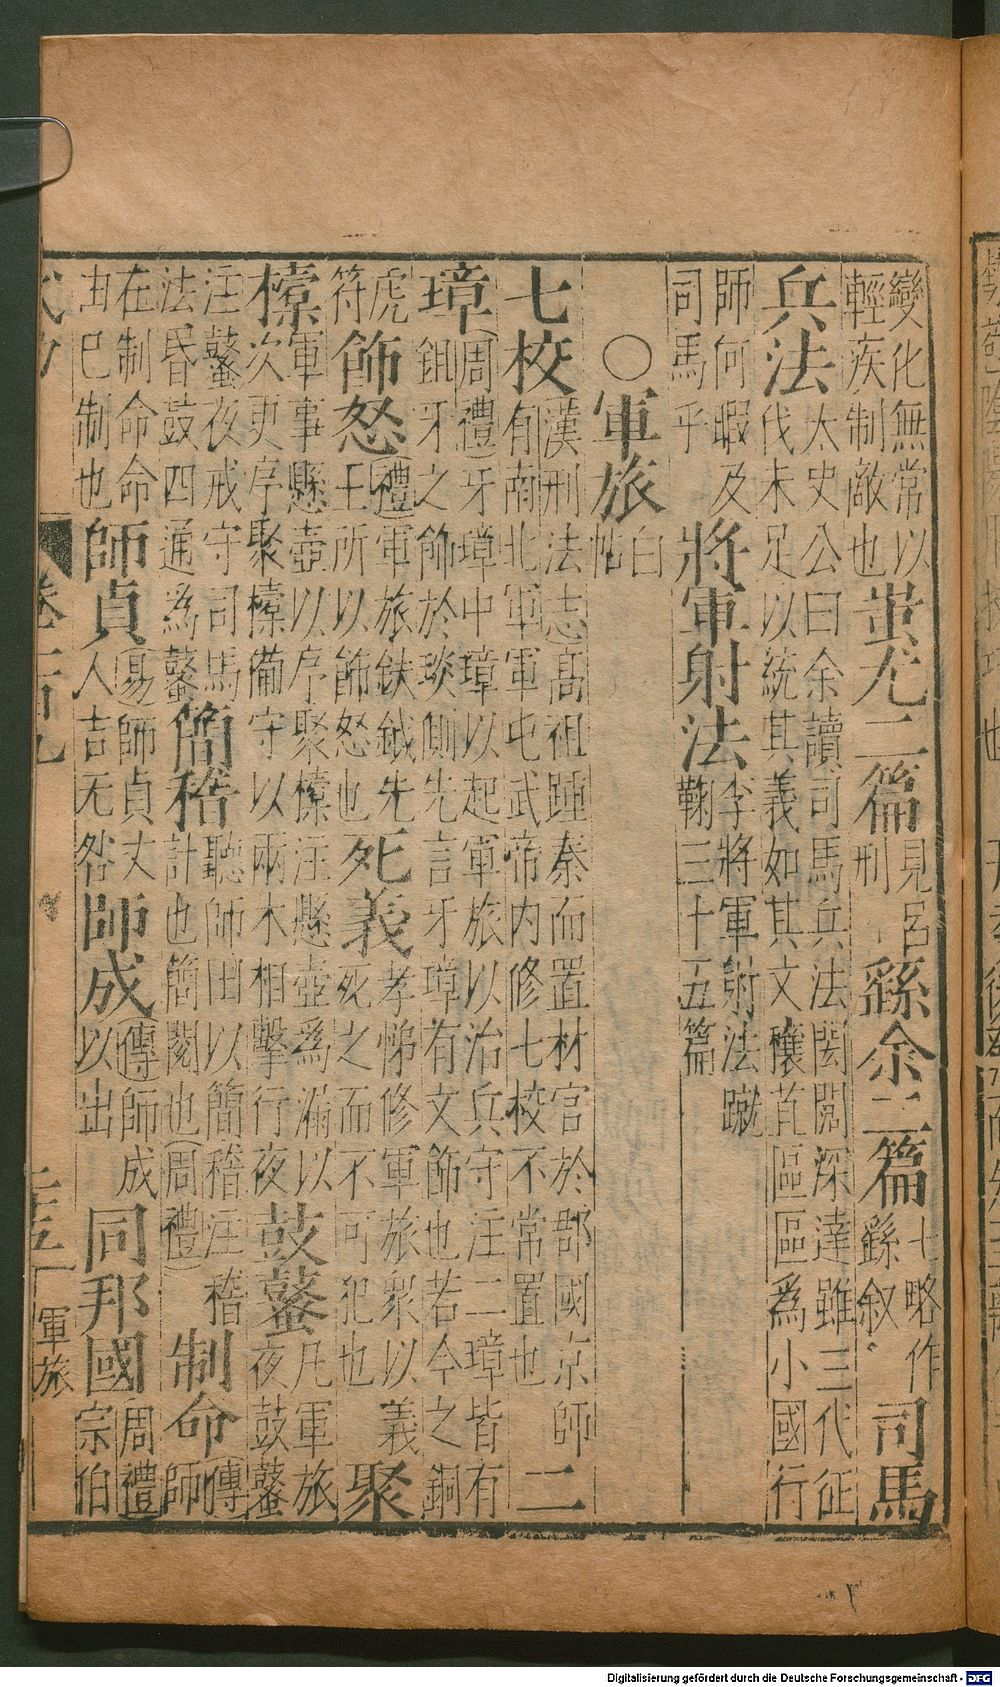 變化無常以
輕疾制敵也
蚩尤二篇
見呂
刑
繇余二篇
七略作
繇叙
司馬
兵法
太史公曰余讀司馬兵法閎闊深達雖三代征
伐未足以統其義如其文穰苴區區為小國行
師何暇及
司馬乎
將軍射法
李將軍射法蹴
鞠三十五篇
〇軍旅
白
帖
七校
漢刑法志高祖踵秦而置材官於郡國京師
有南北軍軍屯武帝內修七校不常置也
二
璋
周禮牙璋中璋以起軍旅以治兵守注二璋皆有
鉏牙之飾於琰側先言牙璋有文飾也若今之銅
虎
符
飾怒
禮軍旅鈇鉞先
王所以飾怒也
死義
孝悌修軍旅衆以義
死之而不可犯也
聚
㯓
軍事懸壺以序聚㯓注懸壺為漏以
次更序聚㯓備守以兩木相擊行夜
鼓鼜
凡軍旅
夜鼓鼜
注鼜夜戒守司馬
法昏鼓四通為鼜
簡稽
聽師田以簡稽注稽
計也簡閱也周禮
制命
傳
師
在制命命
由已制也
師貞
易師貞丈
人吉无咎
師成
傳師成
以出
同邦國
周禮
宗伯
軍旅
Digitalisierung gefördert durch die Deutsche Forschungsgemeinschaft - DFG